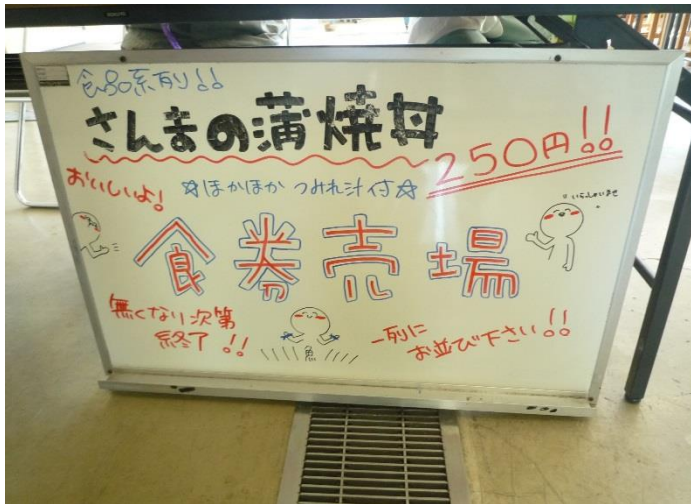 食品系有り!!
さんまの蒲焼丼
250円!!
おいしいよ!
☆ほかほか つみれ汁付☆
いらっしゃいませ
食券売場
無くなり次第
終了!!
魚
一列に
お並び下さい!!